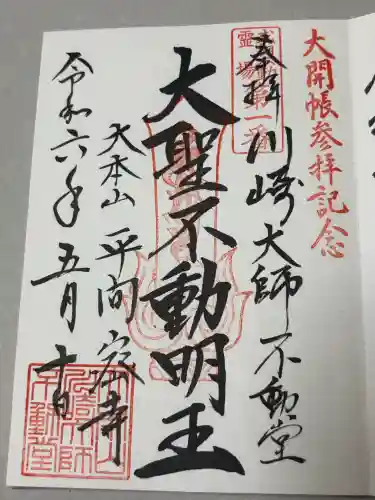 大開帳参拝記念
奉拝 川崎大師 不動堂
霊場第一番
大聖不動明王
大本山 平間寺
令和六年五月十日